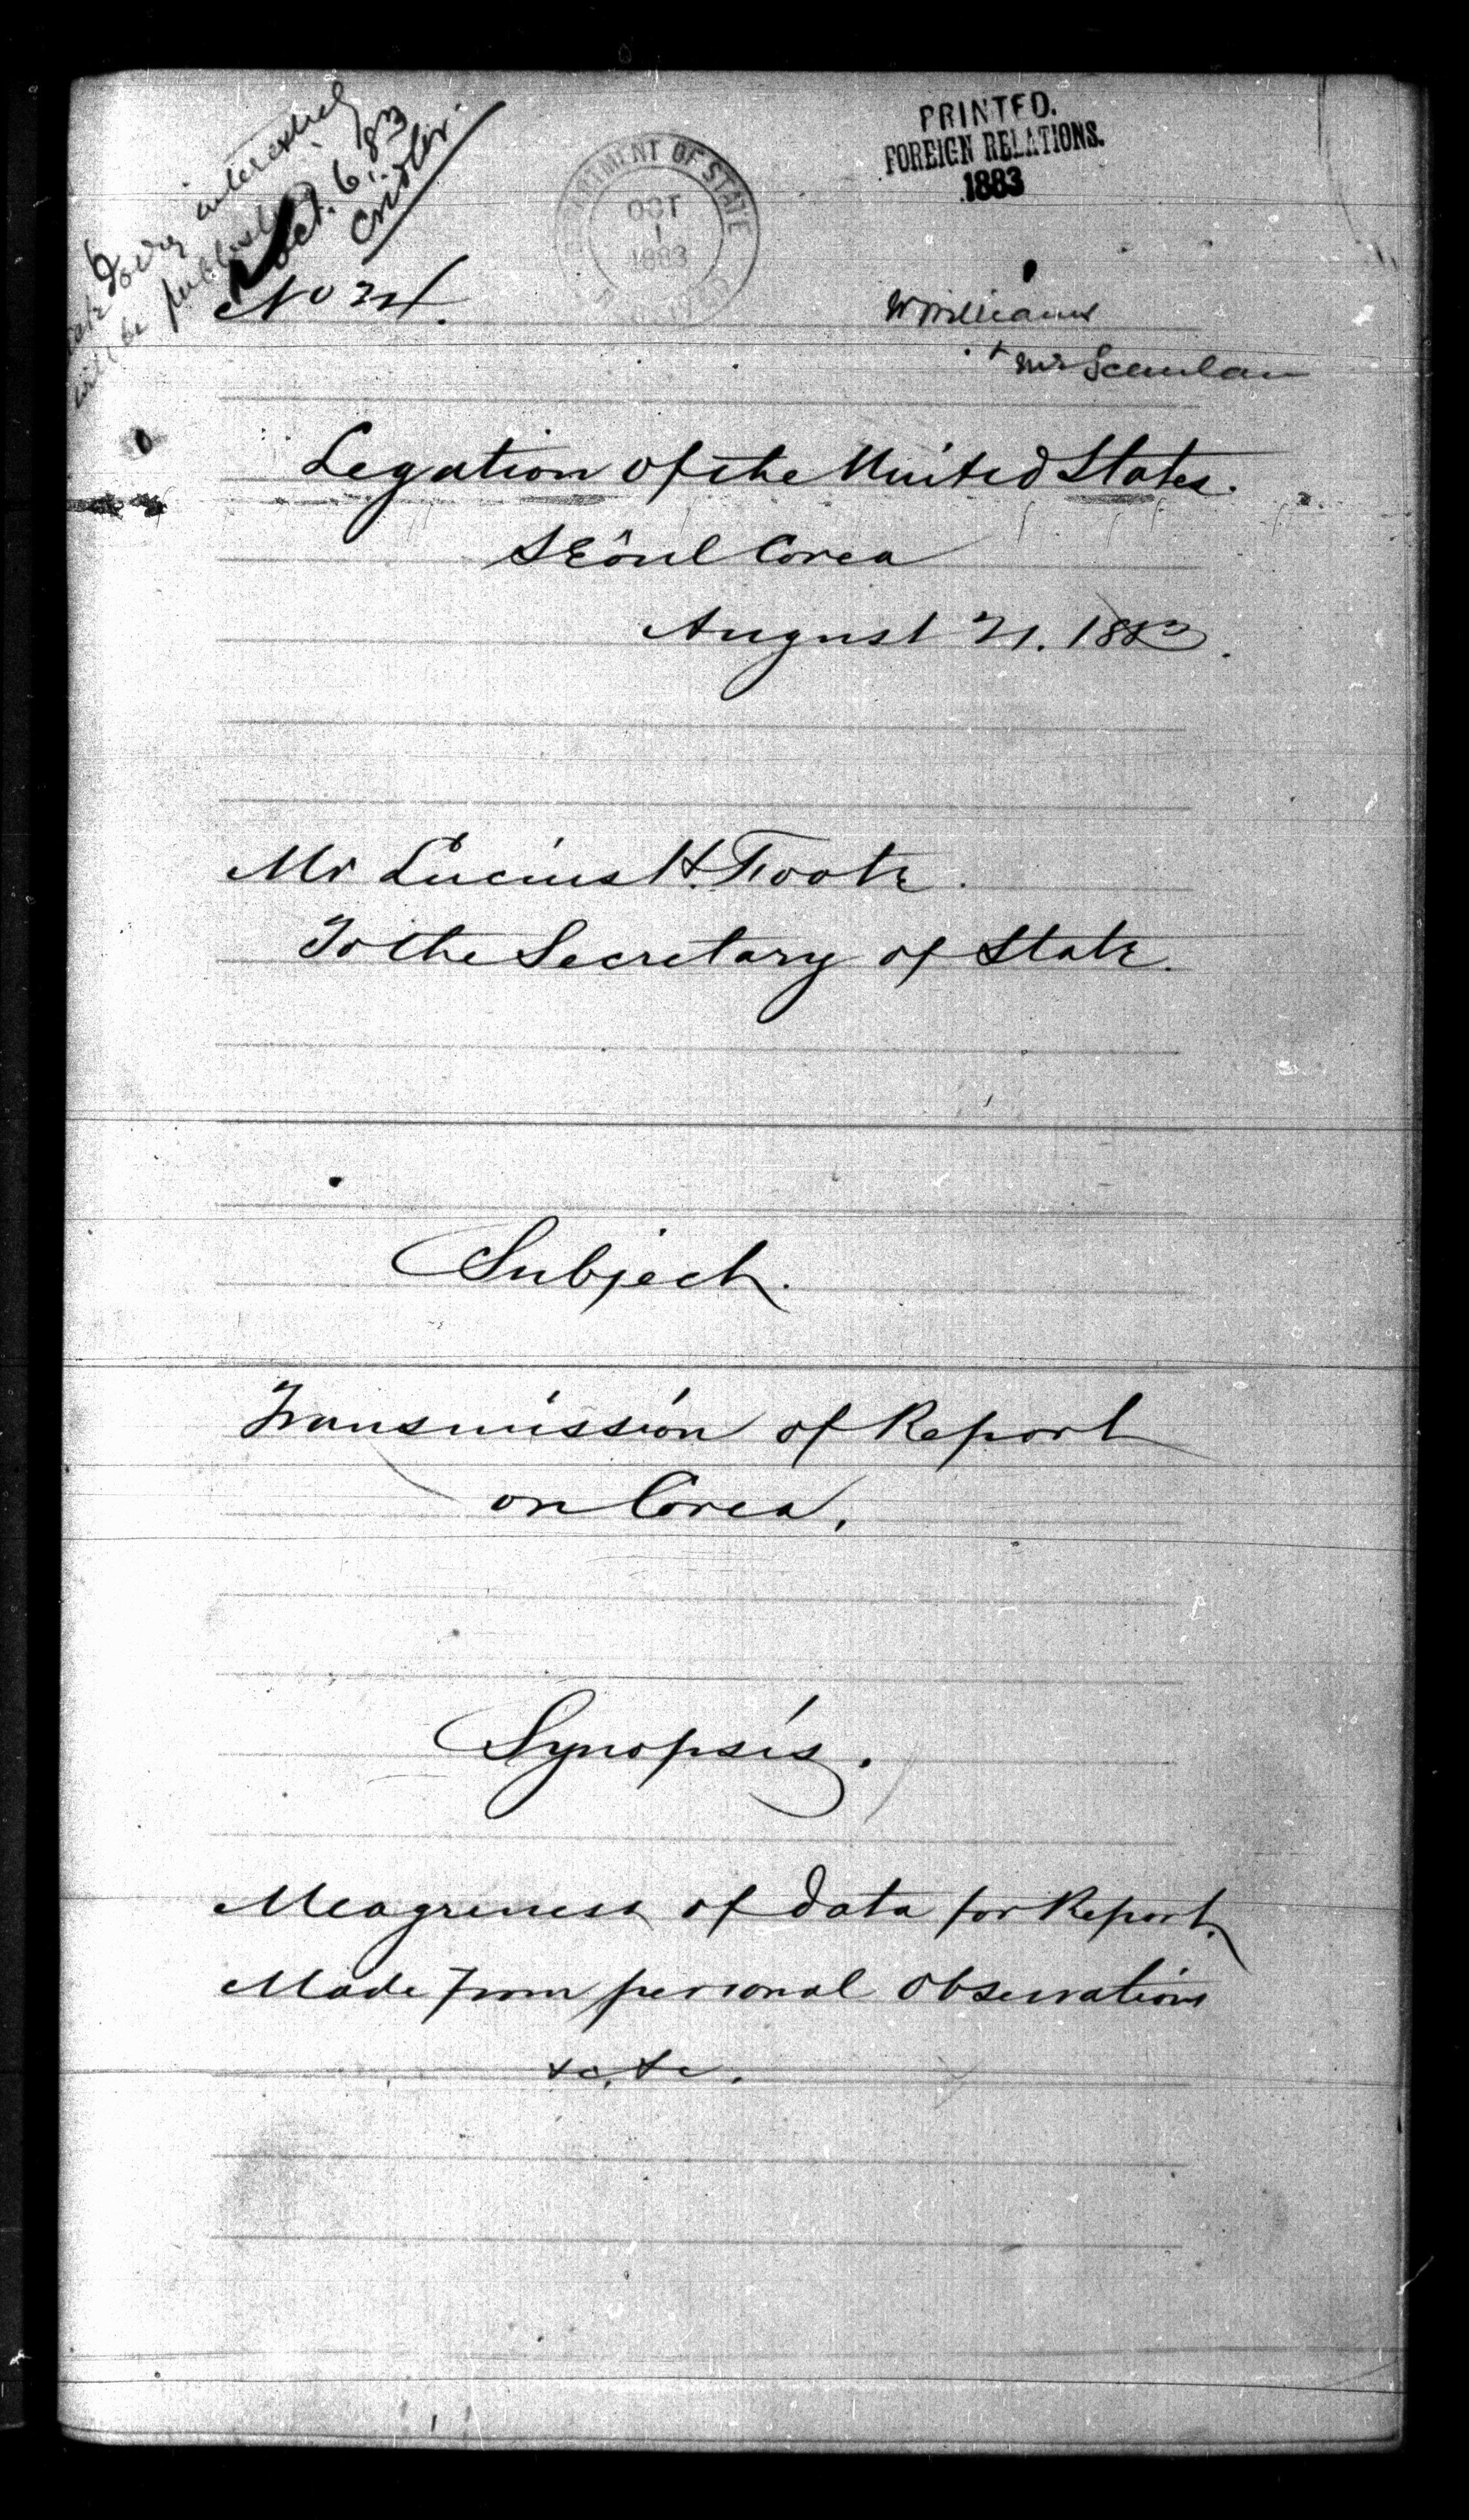 very interesting
will be published
Oct. 6. 83
Cridler.
DEPARTMENT OF STATE
OCT
1
1883
PRINTED.
FOREIGN RELATIONS.
1883
No 24.
W Williams
+ Mr Scanlan
Legation of the United States.
SEôul Corea
August 21. 1883.
Mr Lucius H. Foote.
To the Secretary of State.
Subject.
Transmission of Report
on Corea.
Synopsis.
Meagreness of data for Report.
Made from personal Observations
&c. &c.